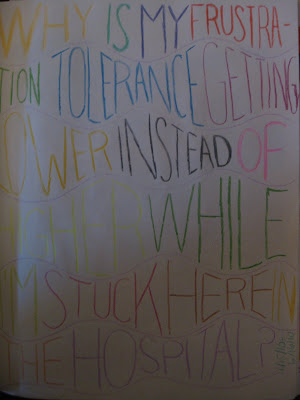 WHY IS MY FRUSTRA-
TION TOLERANCE GETTING
LOWER INSTEAD OF
HIGHER WHILE
I'M STUCK HERE IN
THE HOSPITAL?